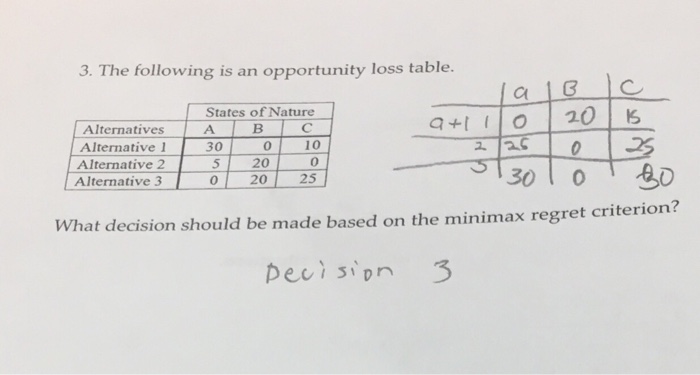 3. The following is an opportunity loss table.
States of Nature
Alternatives A B C
Alternative 1 30 0 10
Alternative 2 5 20 0
Alternative 3 0 20 25
a B C
a+1 1 0 20 15
2 25 0 25
3 30 0 30
What decision should be made based on the minimax regret criterion?
Decision 3